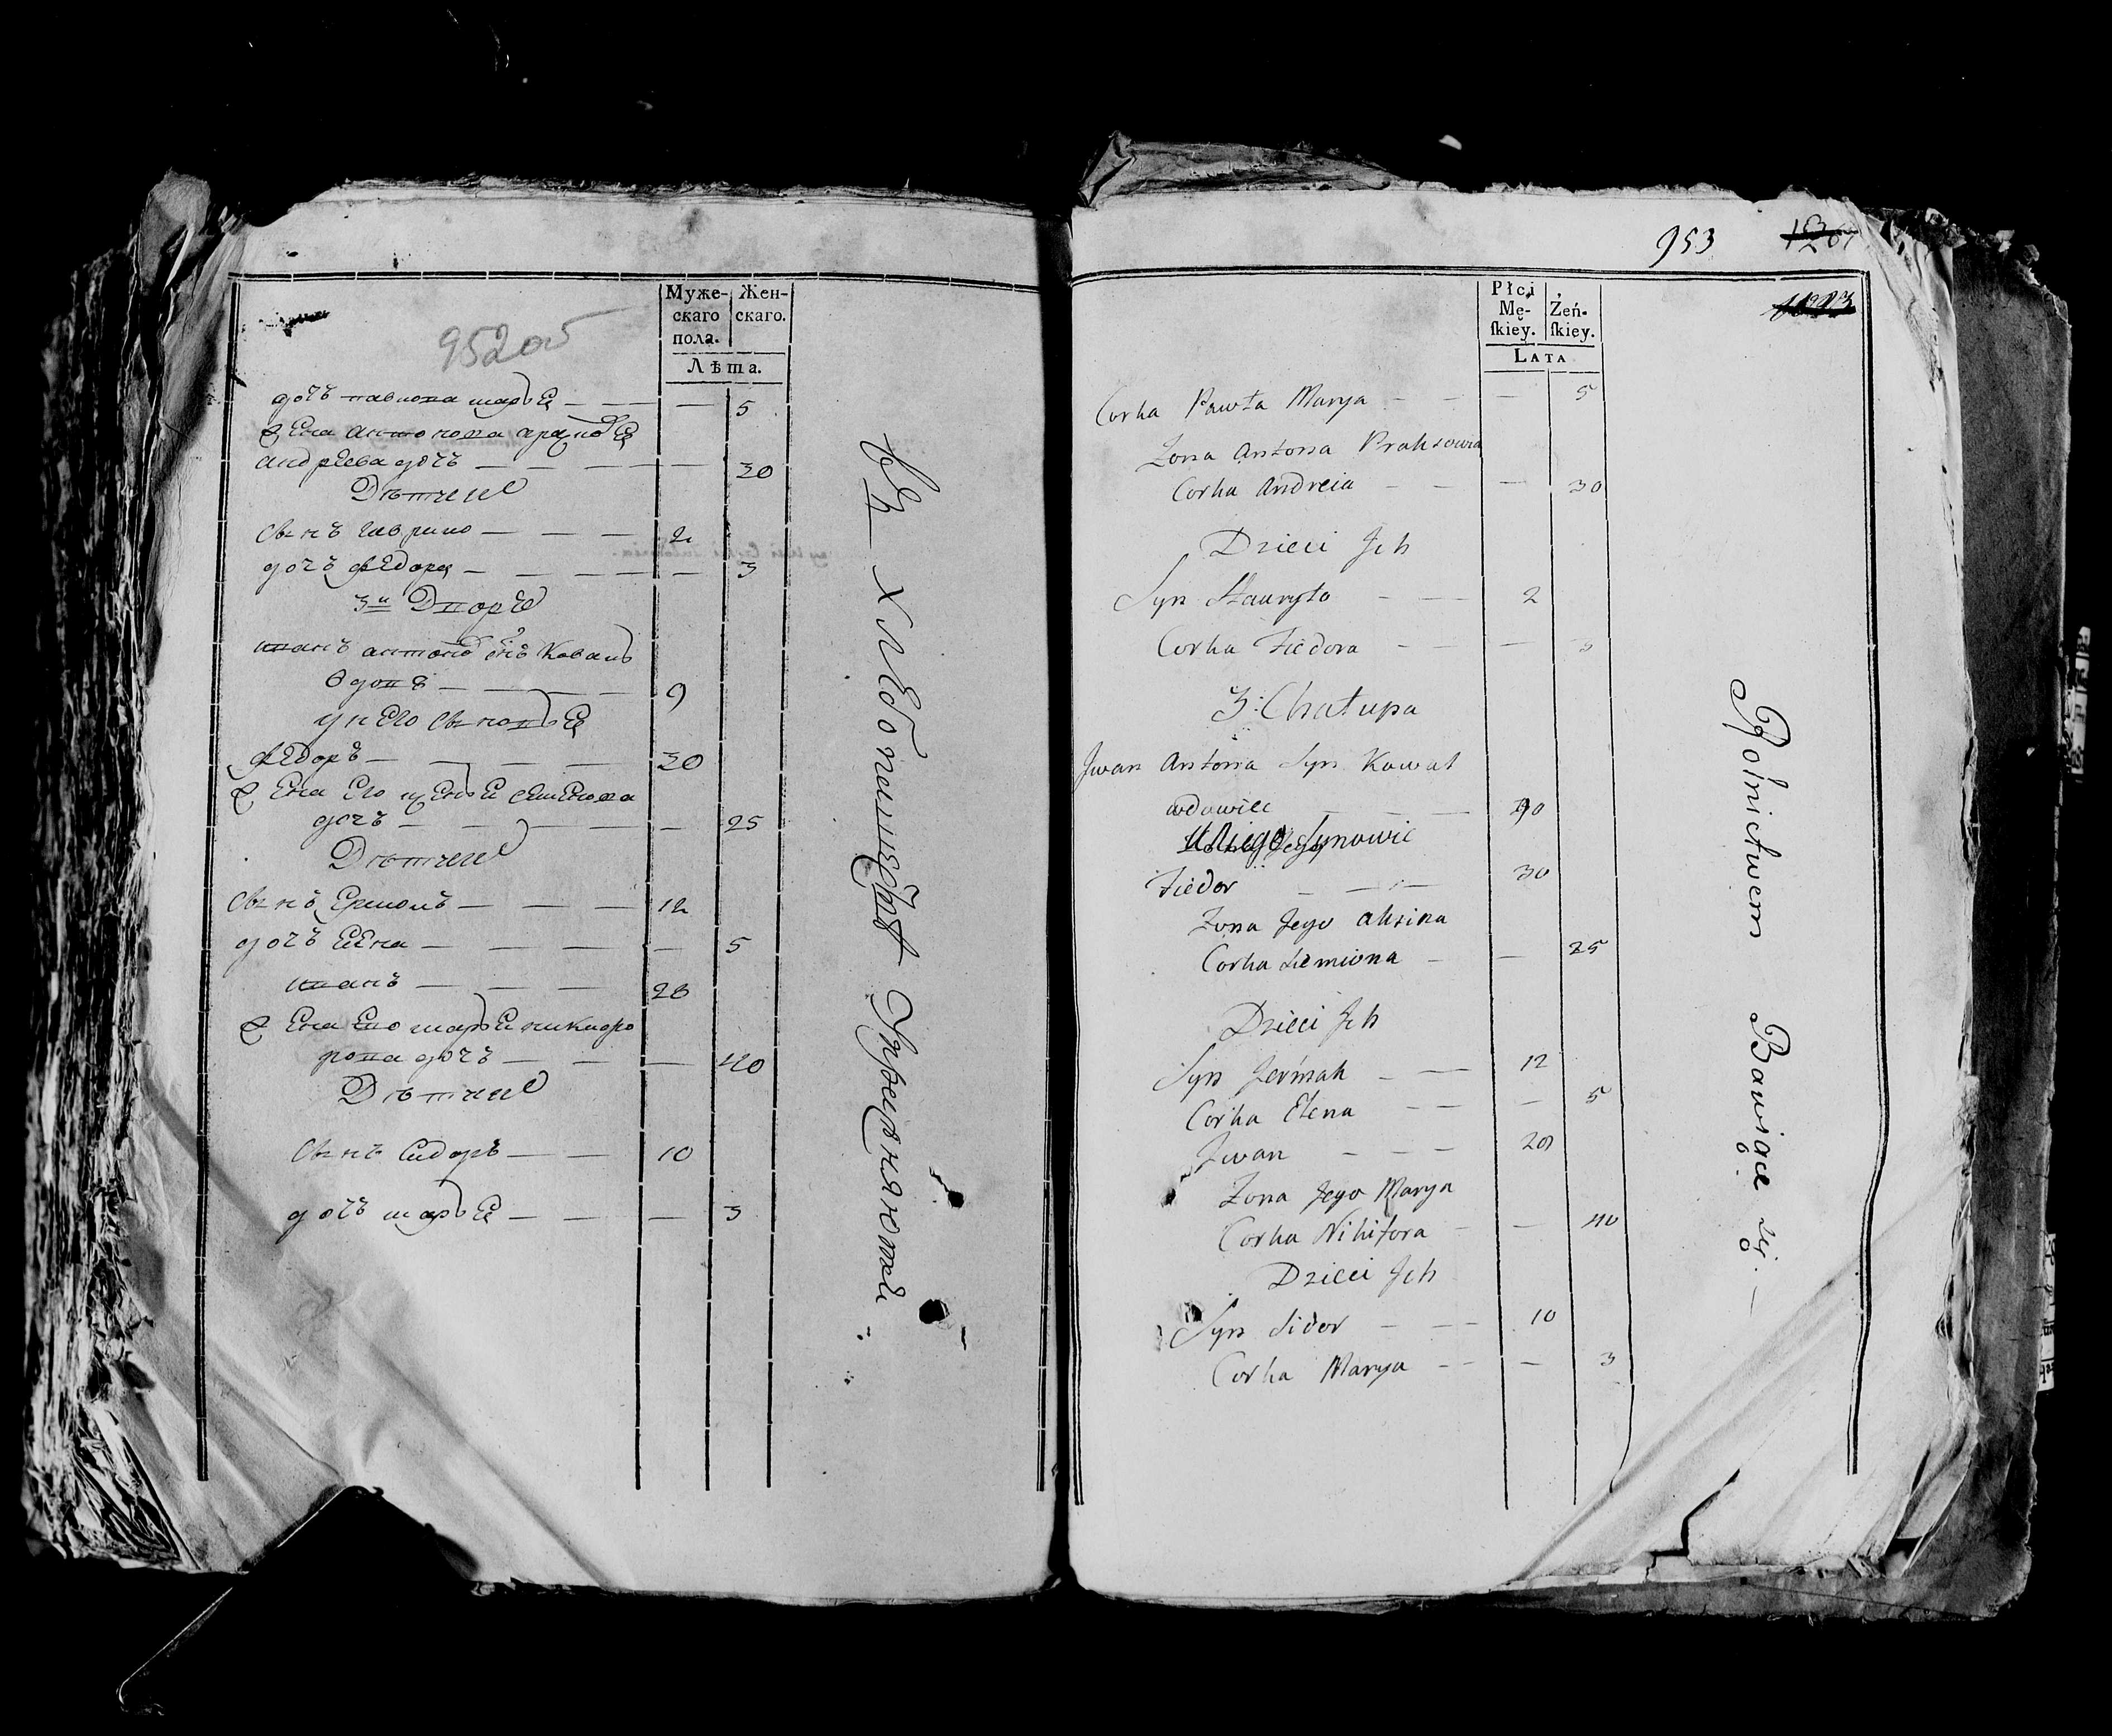 952об
Муже-
скаго
пола.
Жен-
скаго.
Лѣта.
дочь павлова марья — — — 5
жена антонова
андреева дочь — — — — 30
Дѣти ихъ
сынъ гаврило — — — 2
дочь федора — — — — 3
3й Дворъ
иванъ антоновъ снъ Коваль
вдовъ — — — 9
у него сыновья
федоръ — — — — 30
жена его ксенья семенова
дочь — — — — 25
Дѣти ихъ
сынъ Ермолъ — — — 12
дочь елена — — — — 5
иванъ — — — 28
жена его марья никифо
рова дочь — — — 40
Дѣти ихъ
сынъ Сидоръ — — 10
дочь марья — — — — 3
въ хлебопашествѣ упражняются
953
Płci
Mę-
ſkiey.
Żeń-
ſkiey.
LATA
Corka Pawła Marya — — — 5
Zona Antona Praksowia
Corka Andreia — — — 30
Dzieci Jch
Syn Hauryło — — 2
Corka Fiedora — — — 3
3: Chałupa
Jwan Antona Syn Kowal
wdowiec — — — 90
U Niego Synowie
Fiedor — — — 30
Zona Jego Aksina
Corka Siemiona — — 25
Dzieci Jch
Syn Jermak — — 12
Corka Elena — — — 5
Jwan — — — 28
Zona Jego Marya
Corka Nikifora — — 40
Dzieci Jch
Syn Sidor — — — 10
Corka Marya — — — 3
Rolnictwem Bawiące się. —